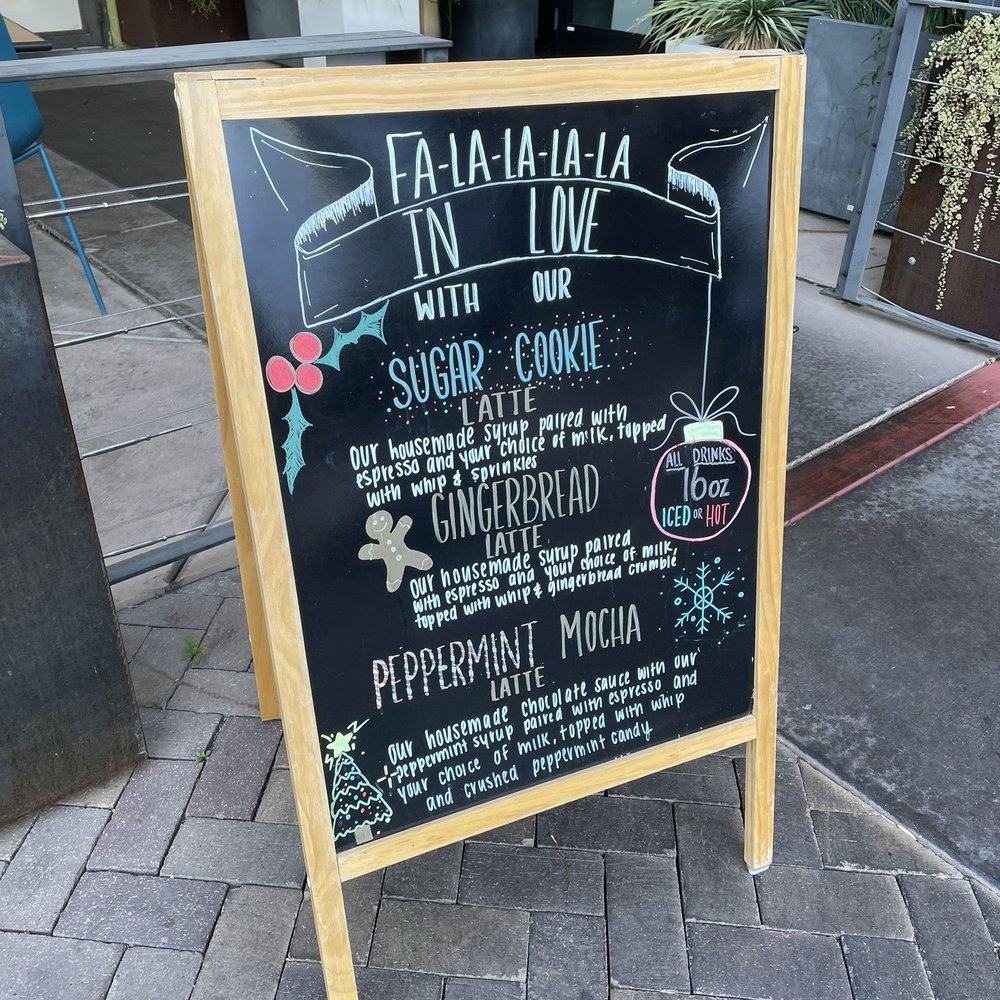 FA-LA-LA-LA-LA
IN LOVE
WITH OUR
SUGAR COOKIE
LATTE
OUR housemade syrup paired with
espresso and your choice of milk, topped
with whip & sprinkles
GINGERBREAD
LATTE
OUR housemade syrup paired
with espresso and your choice of milk,
topped with whip & gingerbread crumble
PEPPERMINT MOCHA
LATTE
OUR housemade chocolate sauce with our
peppermint syrup paired with espresso and
your choice of milk, topped with whip
and crushed peppermint candy
ALL DRINKS
16oz
ICED OR HOT